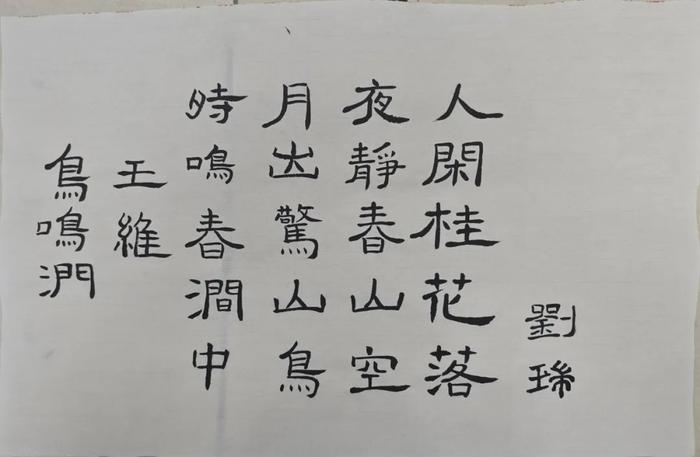 劉琋
人閑桂花落
夜靜春山空
月出驚山鳥
時鳴春澗中
王維
鳥鳴澗